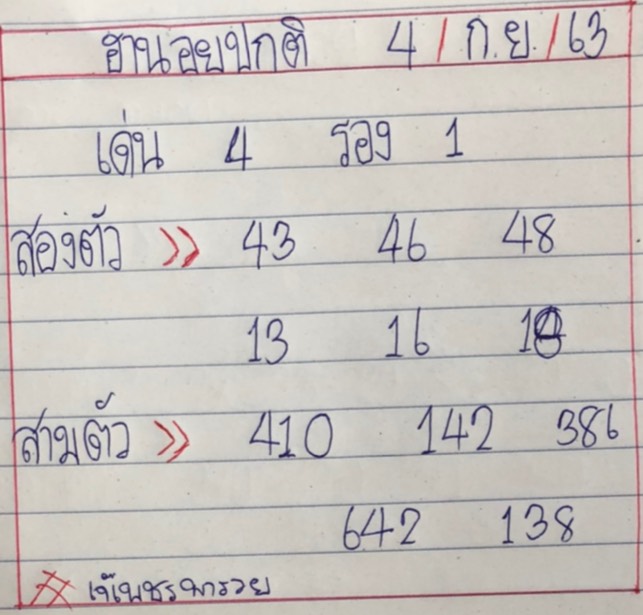 ฮานอยปกติ 4/ก.ย./63
เด่น 4 รอง 1
สองตัว >> 43 46 48
13 16 18
สามตัว >> 410 142 386
642 138
# เจ๊เพชรพารวย